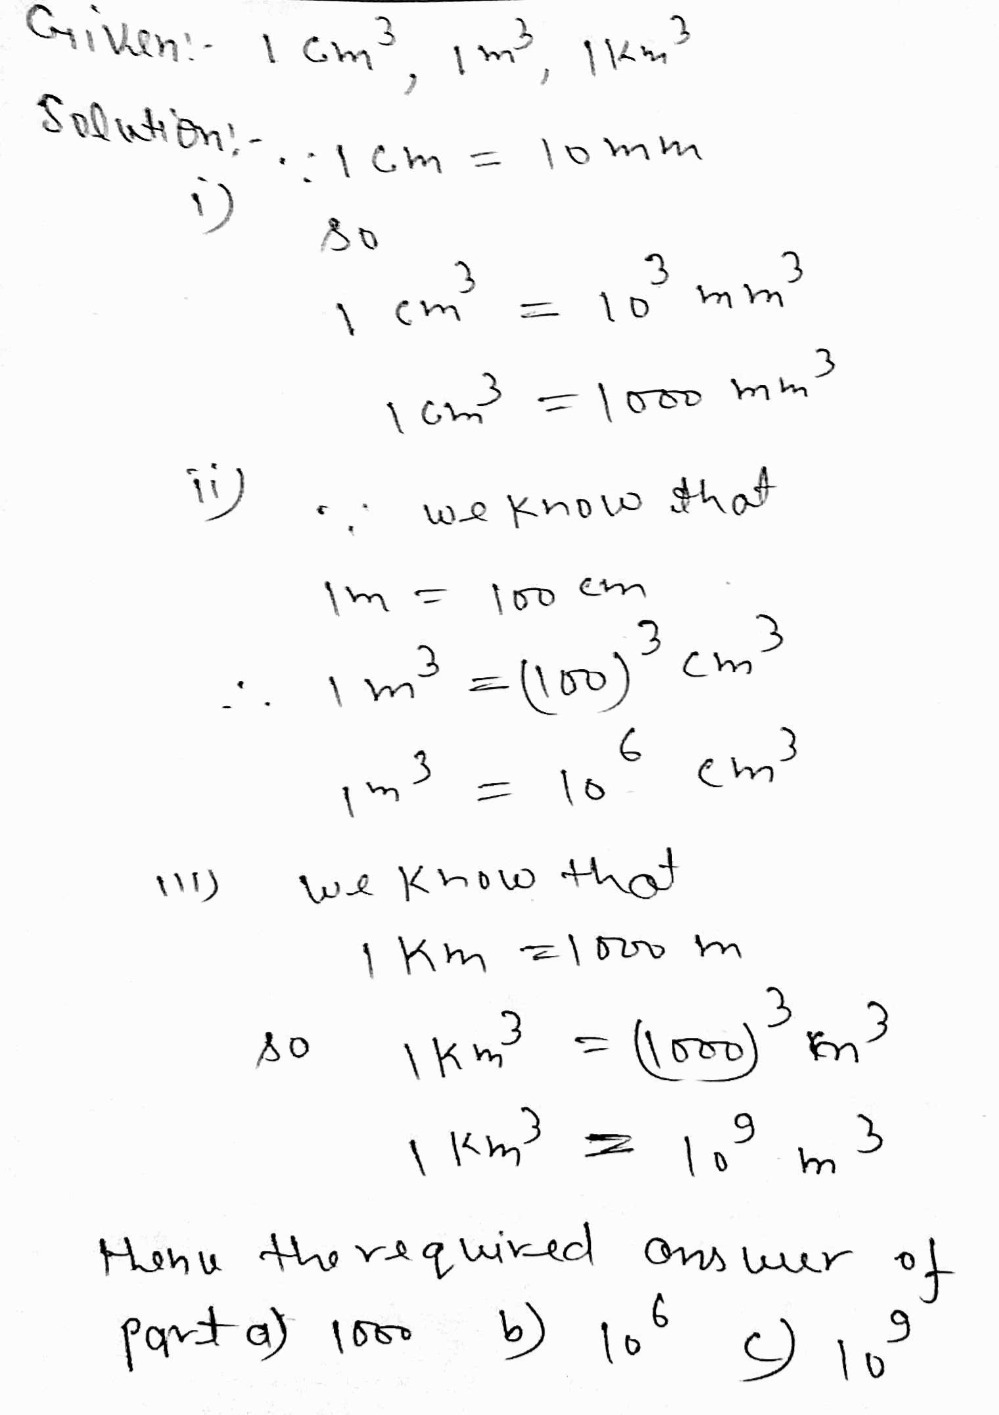 Given:- 1 cm³, 1 m³, 1 Km³
Solution:-
i) ∵ 1 cm = 10 mm
so
1 cm³ = 10³ mm³
1 cm³ = 1000 mm³
ii) ∵ we know that
1m = 100 cm
∴ 1 m³ = (100)³ cm³
1m³ = 10⁶ cm³
iii) we know that
1 Km = 1000 m
so 1 Km³ = (1000)³ m³
1 Km³ = 10⁹ m³
Henu the required answer of
part a) 1000 b) 10⁶ c) 10⁹